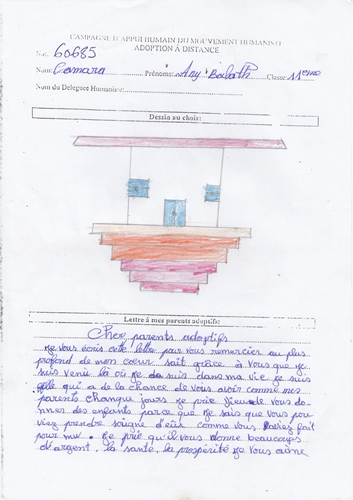 CAMPAGNE D'APPUI HUMAIN DU MOUVEMENT HUMANISTE
ADOPTION À DISTANCE
No: 60685
Nom: Camara Prénoms: Any Classe 11ème
Nom du Delegues Humaniste:
Dessin au choix:
Lettre à mes parents adoptifs:
Cher parents adoptifs
Je vous écris cette lettre pour vous remercier au plus
profond de mon cœur sait grâce à vous que je
suis venu là où je suis dans ma vie je suis
celle qui a de la chance de vous avoir comme mes
parents chanque jours je prie Dieu de vous do-
nner des enfants parce que je sais que vous pou
viez prendre soigne d'eux comme vous l'aviez fait
pour moi. Je prie qu'il vous donne beaucoups
d'argent, la santé, la prospérité je vous aime